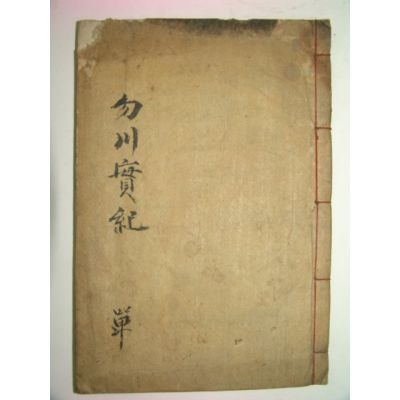 勿川實紀
單